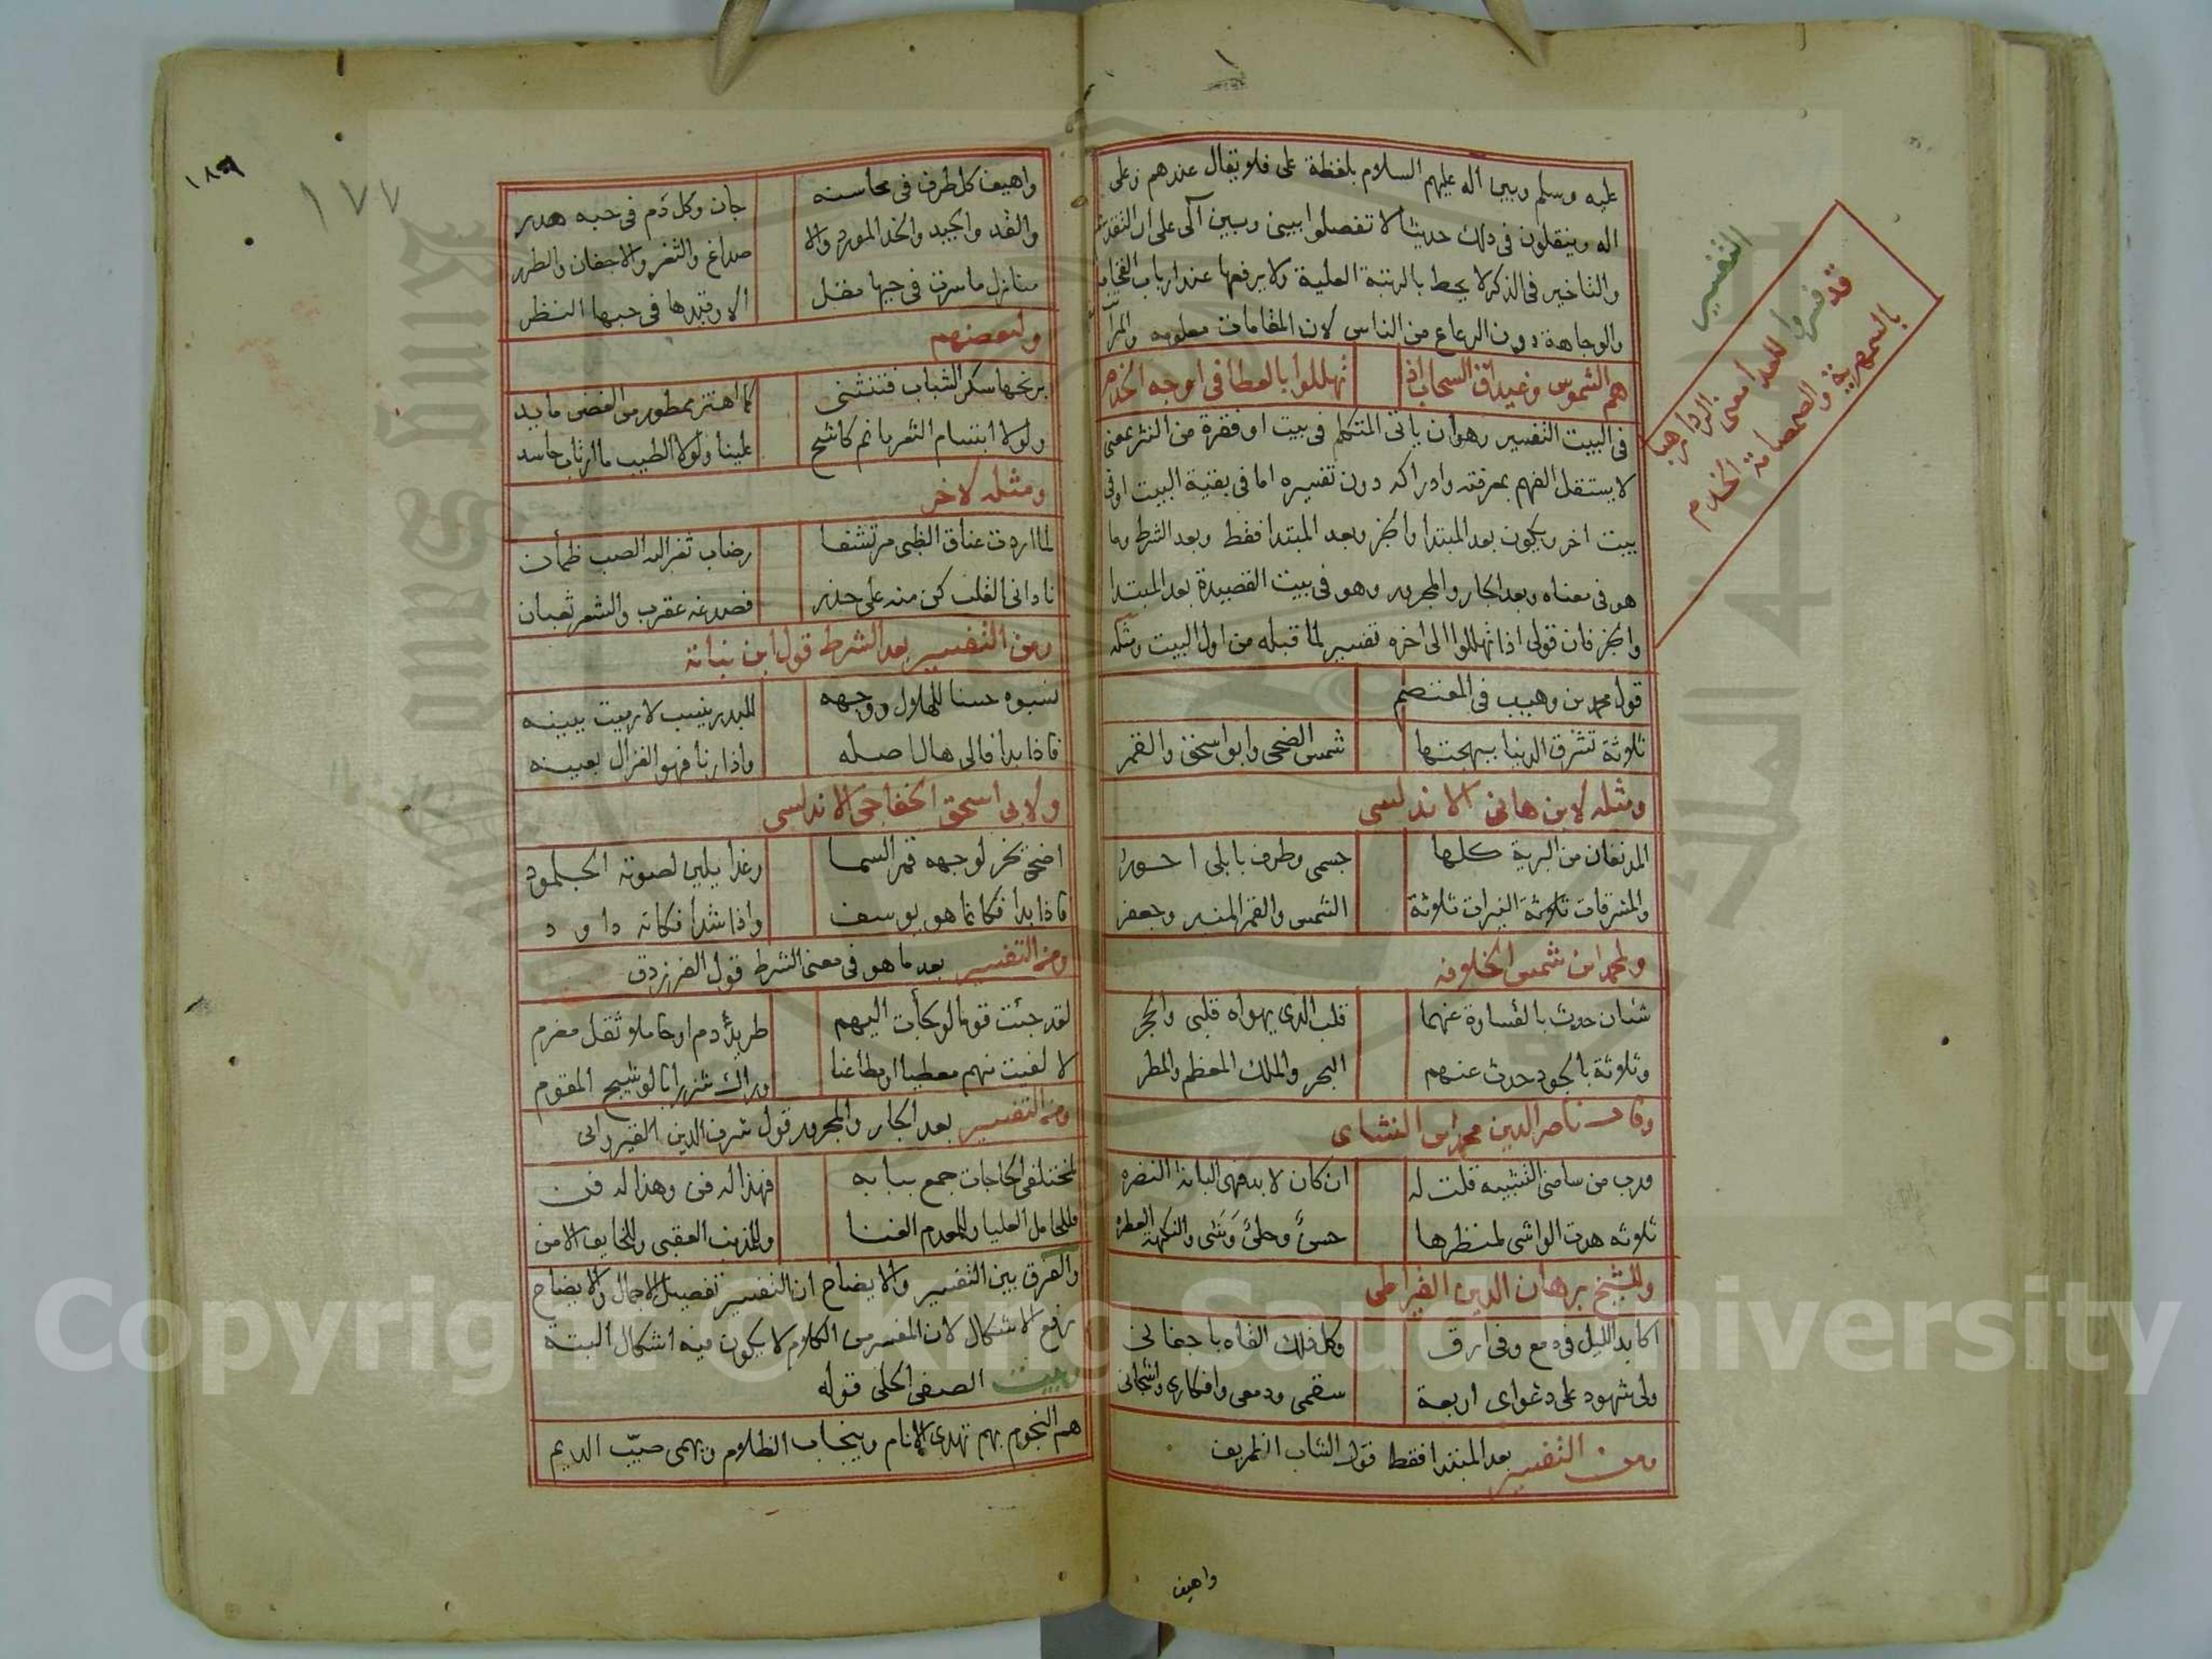 عليه وسلم وبين اله عليهم السلام بلفظة على فلا يقال عندهم وعلى
اله وينقلون في ذلك حديثا لا تفصلوا بيني وبين آلى على ان التقديم
والتاخير في الذكر لا يحط بالرتبة العلية ولا يرفعها عند ارباب الفخامة
والوجاهة دون الرعاع من الناس لان المقامات معلومه والمراتب
هم الشموس وغيداق السحاب اذا تهللوا بالعطا في اوجه الخدم
في البيت التفسير وهو ان ياتى المتكلم في بيت او فقرة من النثر بمعنى
لا يستقل الفهم بمعرفته وادراكه دون تفسيره اما في بقية البيت او في
بيت اخر ويكون بعد المبتدا والخبر وبعد المبتدا فقط وبعد الشرط وما
هو في معناه وبعد الجار والمجرور وهو في بيت القصيدة بعد المبتدا
والخبر فان قولى اذا تهللوا الى اخره تفسير لما قبله من اول البيت ومثله
قول محمد بن وهيب في المعتصم
ثلاثة تشرق الدنيا ببهجتها شمس الضحى وابو اسحق والقمر
ومثله لابن هانى الاندلسى
المدنفان من البرية كلها جسمى وطرف بابلى احور
والمشرقات النيرات ثلاثة الشمس والقمر المنير وجعفر
ولمحمد ابن شمس الخلافه
شئان حدث بالقساوة عنهما قلب الذى يهواه قلبى والحجر
وثلاثة بالجود حدث عنهم البحر والملك المعظم والمطر
وقال ناصر الدين محمد ابن النشاى
ان كان لا بد فهى البانة النضره
ثلاثه هدت الواشى لمنظرها وحلى وشى والنكهة العطره
وللشيخ برهان الدين القيراطى
اكابد الليل في دمع وفى ارق وكل ذلك القاه باجفانى
ولى شهود على دعواى اربعة سقمى ودمعى وافكارى واشجانى
ومن التفسير بعد المبتدا فقط قول الشاب الظريف
واهيف
التفسير
قد فسروا للعدا معنى الردا رهبا
بالسمهرية والصمصامة الخذم
١٧٧
واهيف كل طرف في محاسنه جان وكل دم في حبه هدر
والقد والجيد والخد المورد والا صداغ والثغر والاجفان والطرر
منازل ما سرت في حيها مقل الا وقيدها في حبها النظر
ولبعضهم
يرنحها سكر الشباب فتنثنى كما اهتز ممطور من الغض مايد
ولولا ابتسام الثغر ما نم كاشح علينا ولولا الطيب ما ارتاب حاسد
ومثله لاخر
لما اردت عناق الظبى مرتشفا رضاب ثغر اليه الصب ظمأن
نادانى القلب كن منه على حذر فصدغه عقرب والشعر ثعبان
ومن التفسير بعد الشرط قول ابن نباتة
نسبوه حسنا للهلال ووجهه للبدر ينسب لا يريب بينه
فاذا بدا فالى هالا صله واذا رنا فهو الغزال بعينه
ولابى اسحق الخفاجى الاندلسى
اضحى يخر لوجهه قمر السما وغدا يلين لصوته الجلمود
فاذا بدا فكانما هو يوسف واذا شدا فكانه داود
ومن التفسير بعد ما هو في معنى الشرط قول الفرزدق
لقد جئت قوما لو لجأت اليهم طريد دم او حاملا ثقل مغرم
لا لفيت منهم معطيا او مطاعنا وراك شزرا بالوشيج المقوم
ومن التفسير بعد الجار والمجرور قول شرف الدين القيروانى
لمختلفى الحاجات جمع ببابه فهذا له فن وهذا له فن
فللخامل العليا وللمعدم الغنا وللمذنب العقبى وللخايف الامن
والفرق بين التفسير والايضاح ان التفسير تفصيل الاجمال والايضاح
رفع الاشكال لان المفسر من الكلام لا يكون فيه اشكال البتة
وبيت الصفى الحلى قوله
هم النجوم بهم تهدى الانام وينجاب الظلام ويهمى صيّب الديم
Copyright © King Saud University